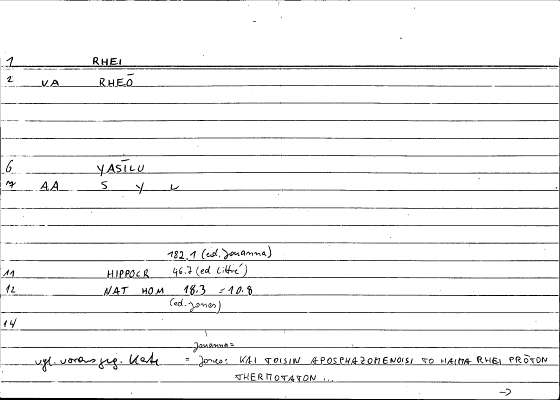 1 RHEI
2 VA RHEŌ
6 YASĪLU
7 AA S Y L
182.1 (ed. Jouanna)
11 HIPPOCR 46.7 (ed Littré)
12 NAT HOM 18.3 = 10.8
(ed. Jones)
14
Jouanna =
vgl. vorausgeg. Karte = Jones: KAI TOISIN APOSPHAZOMENOISI TO HAIMA RHEI PRŌTON
THERMOTATON ...
→